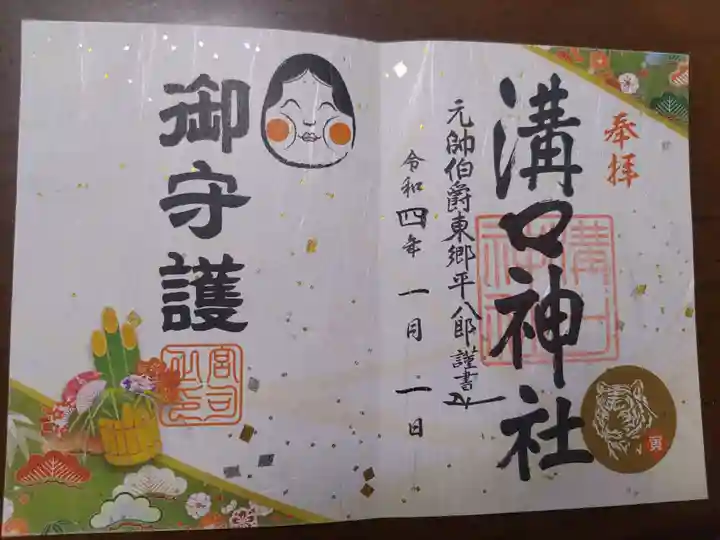 奉拝
溝口神社
元帥伯爵東郷平八郎謹書
令和四年一月一日
寅
御守護
宮司之印